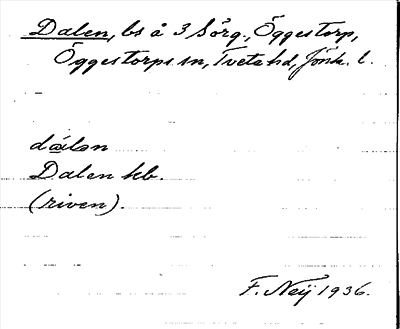 Dalen, bs å 3 Sörg., Öggestorp,
Öggestorps sn, Tveta hd, Jönk. l.
dɑ́lən
Dalen kb.
(riven).
F. Neij 1936.